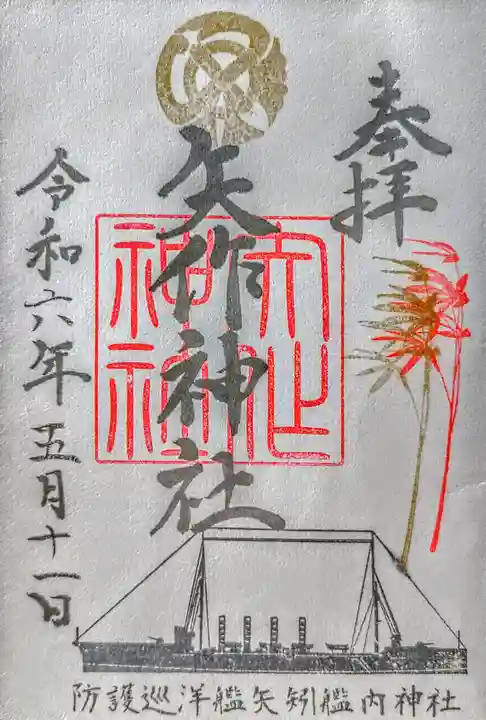 奉拝
矢作神社
矢作
神社
令和六年五月十一日
防護巡洋艦矢矧艦内神社